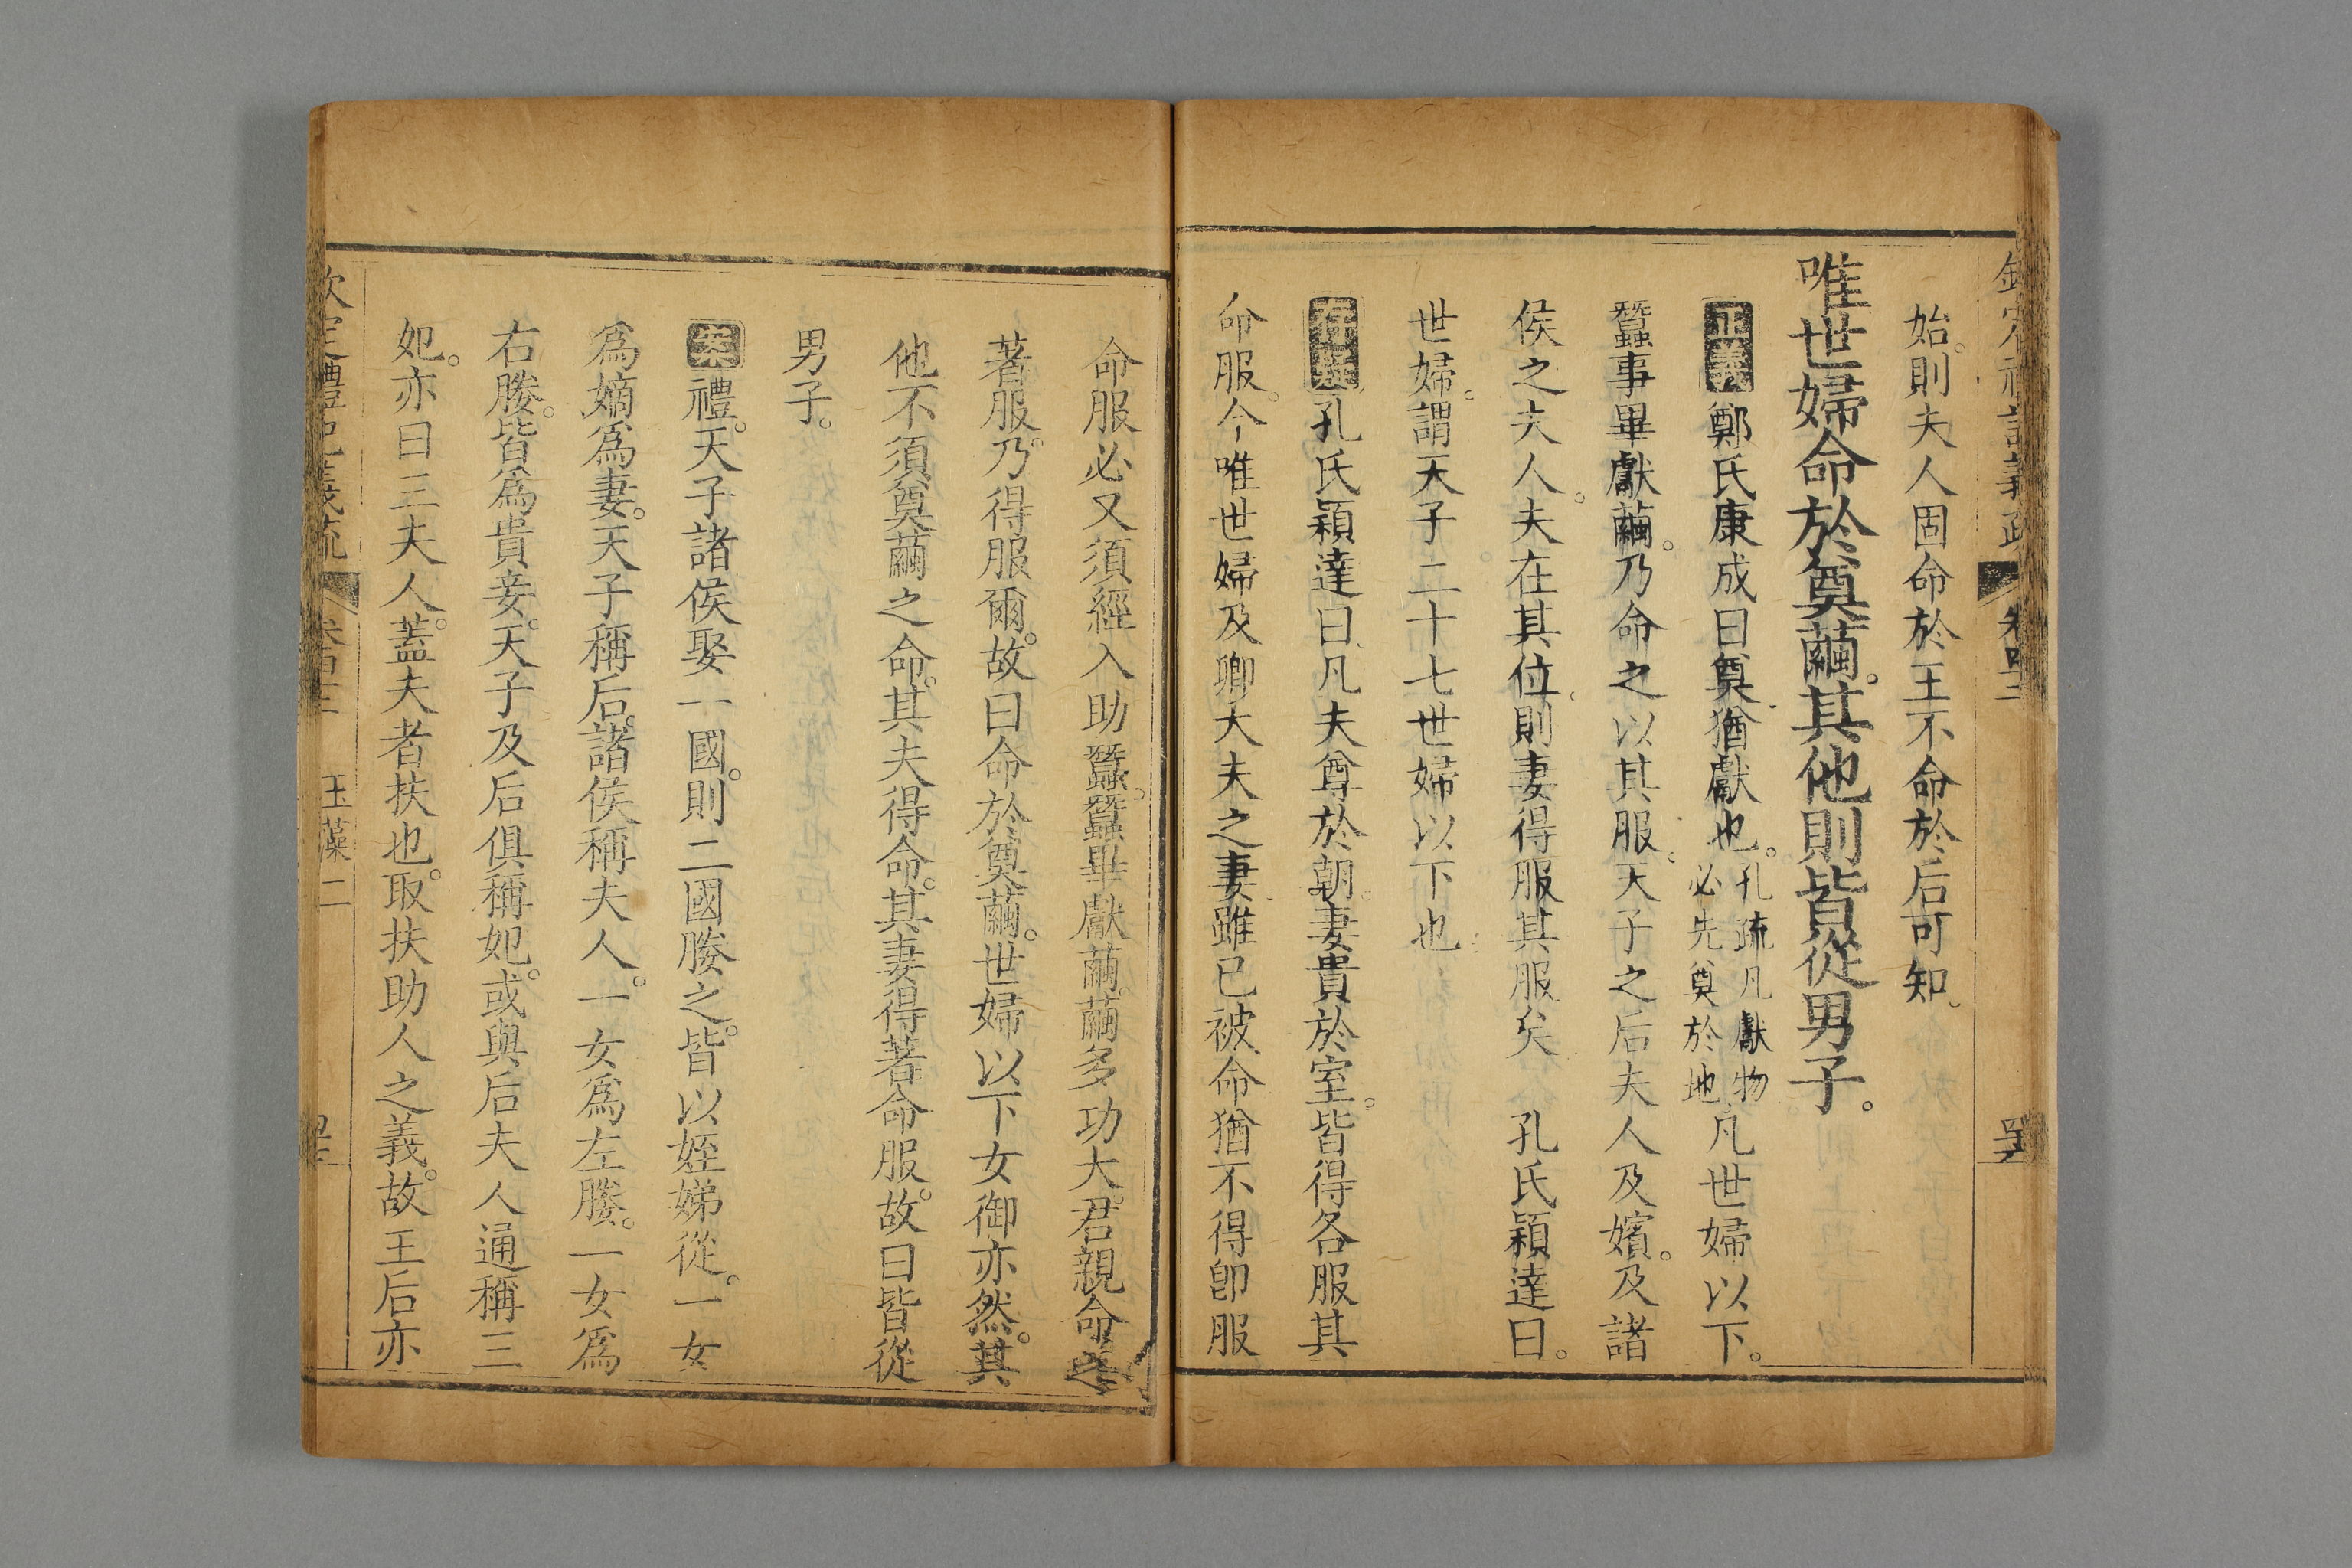 欽定禮記義疏 卷四十二
始。則夫人固命於王不命於后可知。
唯世婦命於奠繭。其他則皆從男子。
正義 鄭氏康成曰。奠。猶獻也。孔疏凡獻物必先奠於地 凡世婦以下。
蠶事畢獻繭。乃命之以其服。天子之后夫人及嬪。及諸
侯之夫人。夫在其位。則妻得服其服矣 孔氏穎達曰。
世婦。謂天子二十七世婦以下也
存疑 孔氏穎達曰。凡夫尊於朝。妻貴於室。皆得各服其
命服。今唯世婦及卿大夫之妻雖已被命猶不得卽服
命服必又須經入助蠶。蠶畢獻繭。繭多功大。君親命之
著服。乃得服爾。故曰命於奠繭。世婦以下女御亦然。其
他不須奠繭之命。其夫得命。其妻得著命服。故曰皆從
男子。
案 禮。天子諸侯娶一國。則二國媵之。皆以姪娣從。一女
爲嫡爲妻。天子稱后。諸侯稱夫人。一女爲左媵。一女爲
右媵。皆爲貴妾。天子及后俱稱妃。或與后夫人通稱三
妃。亦曰三夫人。蓋夫者扶也。取扶助人之義。故王后亦
欽定禮記義疏 玉藻二